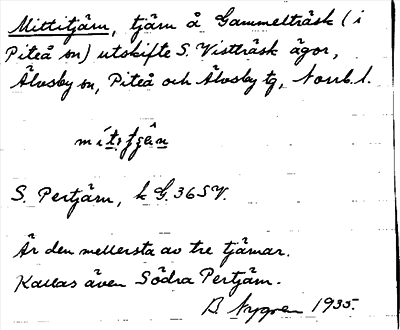 Mittitjärn, tjärn å Gammelträsk (i
Piteå sn) utskifte S. Vistträsk ägor,
Älvsby sn, Piteå och Älvsby tg, Norrb. l.
S. Pertjärn, k G. 36 SV.
Är den mellersta av tre tjärnar.
Kallas även Södra Pertjärn.
B Nygren 1935.